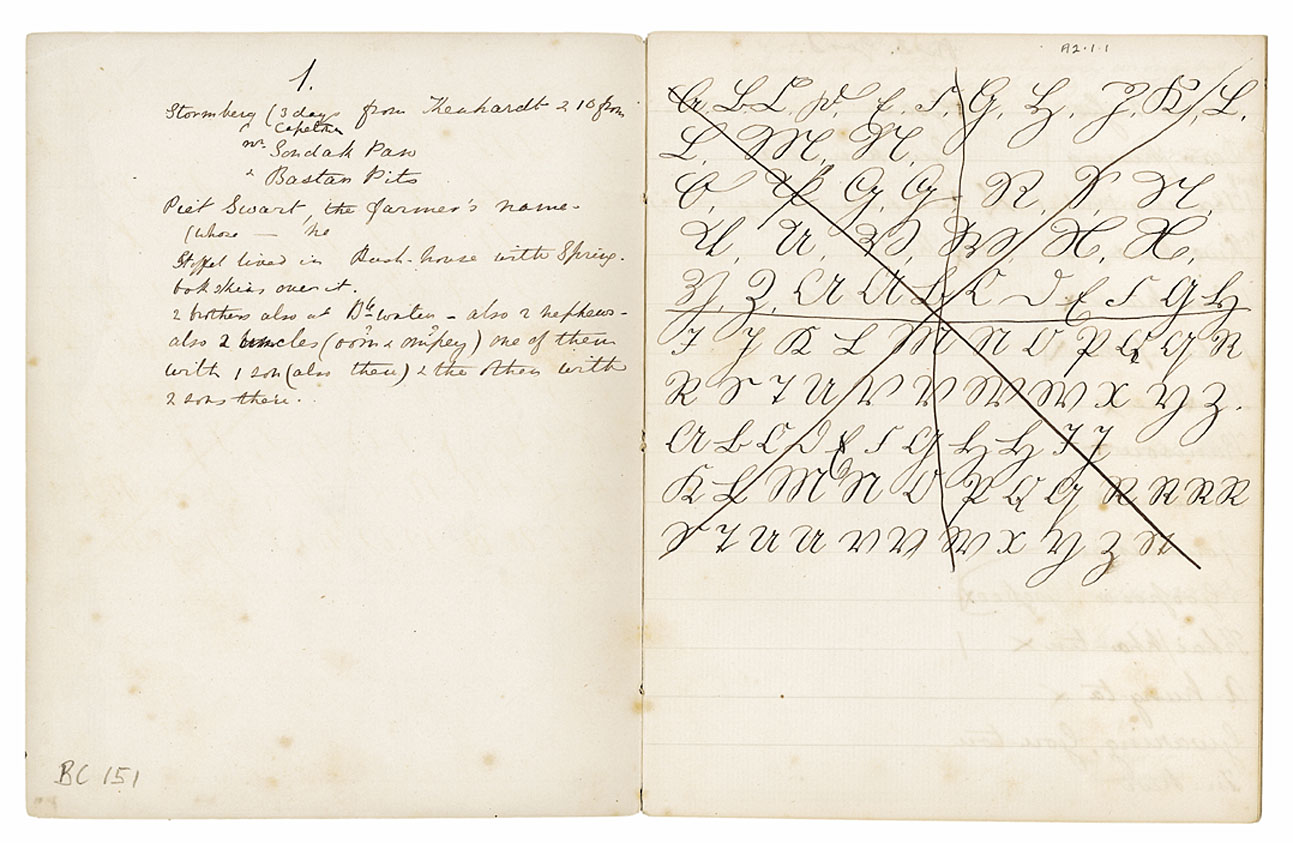 1.
Stormberg (3 days from Kenhardt & 10 from
Capetown
nr. Sondak Pan
" Bastan Pits
Piet Swart, the farmer's name.
(whose — he
Stoffel lived in Bush-house with Spring-
bok skins over it.
2 brothers also at Bk water - also 2 nephews -
also 2 uncles (oom & ompey) one of them
with 1 son (also there) & the other with
2 sons there.
BC 151
A2.1.1
A. B. C. D. E. F. G. H. J. K. L.
L. M. N.
O. P. Q. Q. R. S. N.
U. U. W. W. X. X.
Z. A A B C D E F G H
I J K L M N O P Q Q R
R S T U V V W W X Y Z.
A B C D E F G H H I J
K L M N O P Q Q R R R R
S T U U V V V W X Y Z